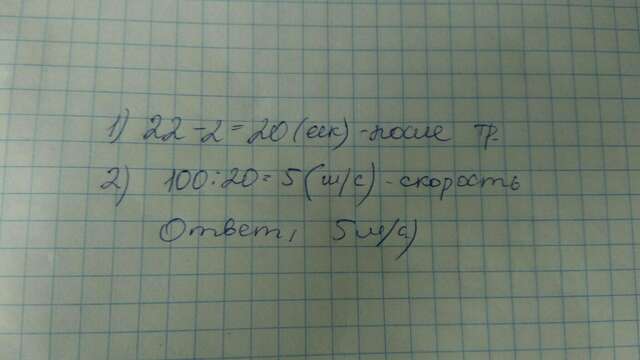 1) 22 - 2 = 20 (сек) - после тр.
2) 100 : 20 = 5 (м/с) - скорость
Ответ, 5 м/с)